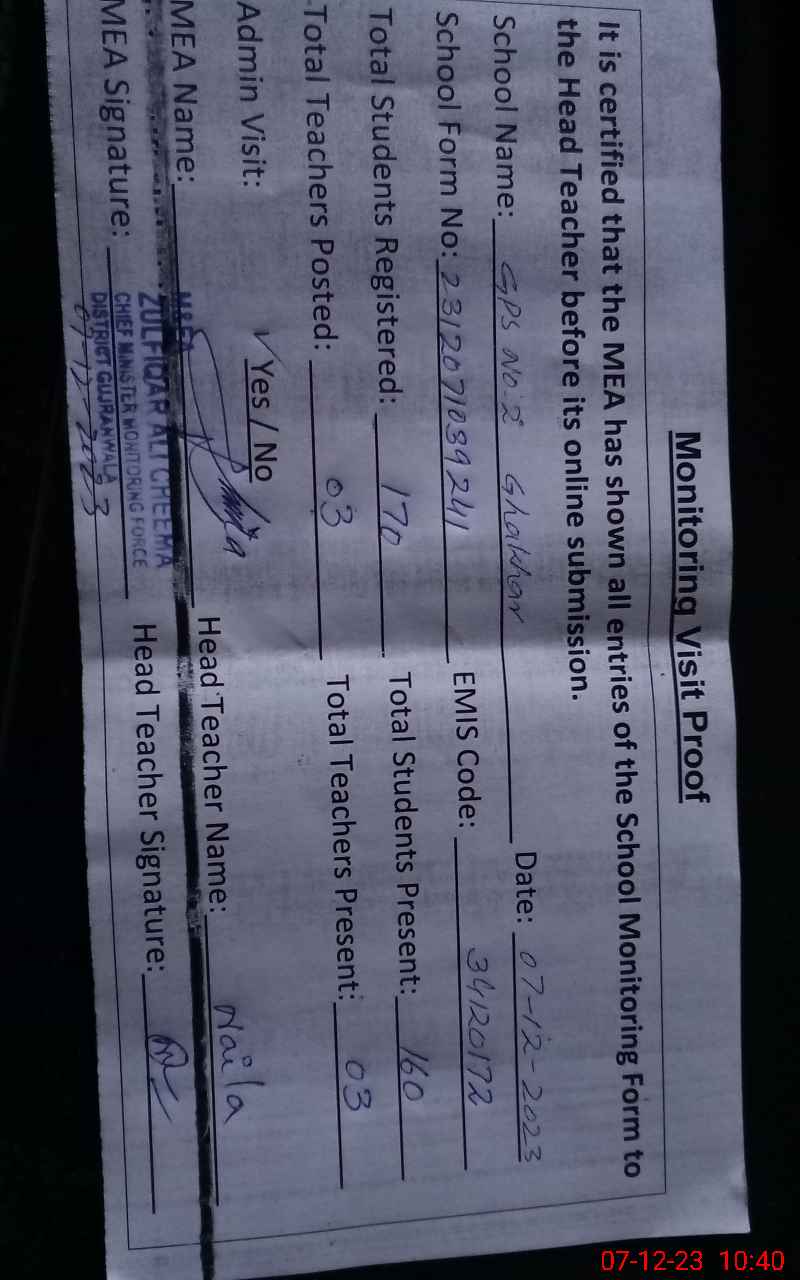 Monitoring Visit Proof
It is certified that the MEA has shown all entries of the School Monitoring Form to
the Head Teacher before its online submission.
School Name: GPS No.2 Ghakhar Date: 07-12-2023
School Form No: 2312071039241 EMIS Code: 34120172
Total Students Registered: 170 Total Students Present: 160
Total Teachers Posted: 03 Total Teachers Present: 03
Admin Visit: ✓ Yes / No
MEA Name: Head Teacher Name: Naila
MEA Signature: Head Teacher Signature:
M&EA
ZULFIQAR ALI CHEEMA
CHIEF MINISTER MONITORING FORCE
DISTRICT GUJRANWALA
07-12-2023
07-12-23 10:40